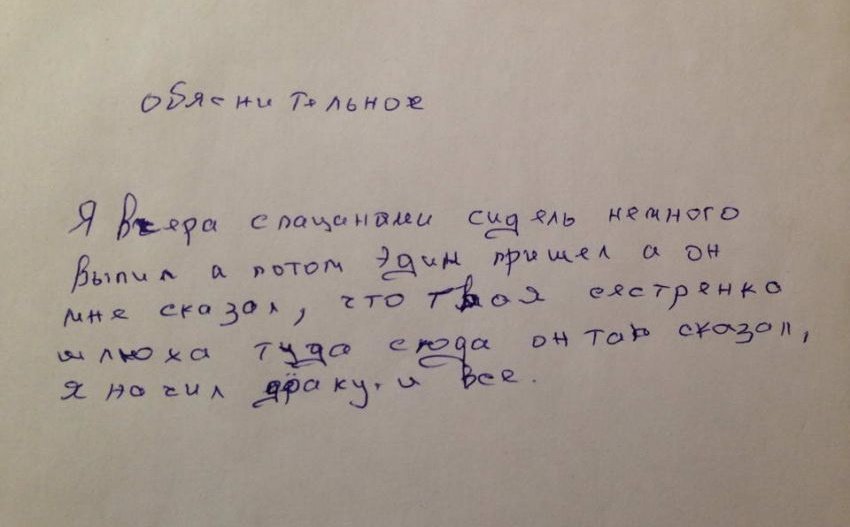 обяснительное
Я вчера спацанами сидель немного
выпил а потом эдин пришел а он
мне сказал, что твоя сястренка
шлюха туда сюда он так сказал,
я начил драку. и все.